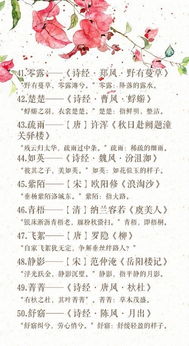 41.零露——《诗经·郑风·野有蔓草》
"野有蔓草,零露漙兮。"零露:降落的露水。
42.楚楚——《诗经·曹风·蜉蝣》
"蜉蝣之羽,衣裳楚楚。"楚楚:指鲜明、整洁。
43.疏雨——【唐】许浑《秋日赴阙题潼
关驿楼》
"残云归太华,疏雨过中条。"疏雨:稀疏的细雨。
44.如英——《诗经·魏风·汾沮洳》
"彼其之子,美如英。"如英:如花似玉的样子。
45.紫陌——【宋】欧阳修《浪淘沙》
"垂杨紫陌洛城东。"紫陌:指大路。
46.青梧——【清】纳兰容若《虞美人》
47.飞絮——【唐】罗隐《柳》
"自家飞絮犹无定,争解垂丝绊路人?"
48.静影——【宋】范仲淹《岳阳楼记》
"浮光跃金,静影沉璧。"静影:指平静的月影。
49.菁菁——《诗经·唐风·杕杜》
"有杕之杜,其叶菁菁",菁菁:草木茂盛。
50.舒窈——《诗经·陈风·月出》
"舒窈纠兮,劳心悄兮。"舒窈:舒缓轻盈的样子。